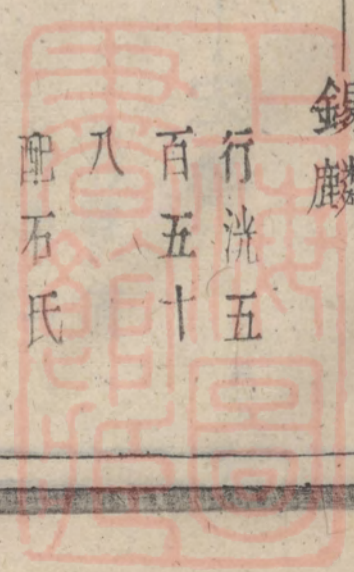 錫麟
行洸五
百五十
八
配石氏